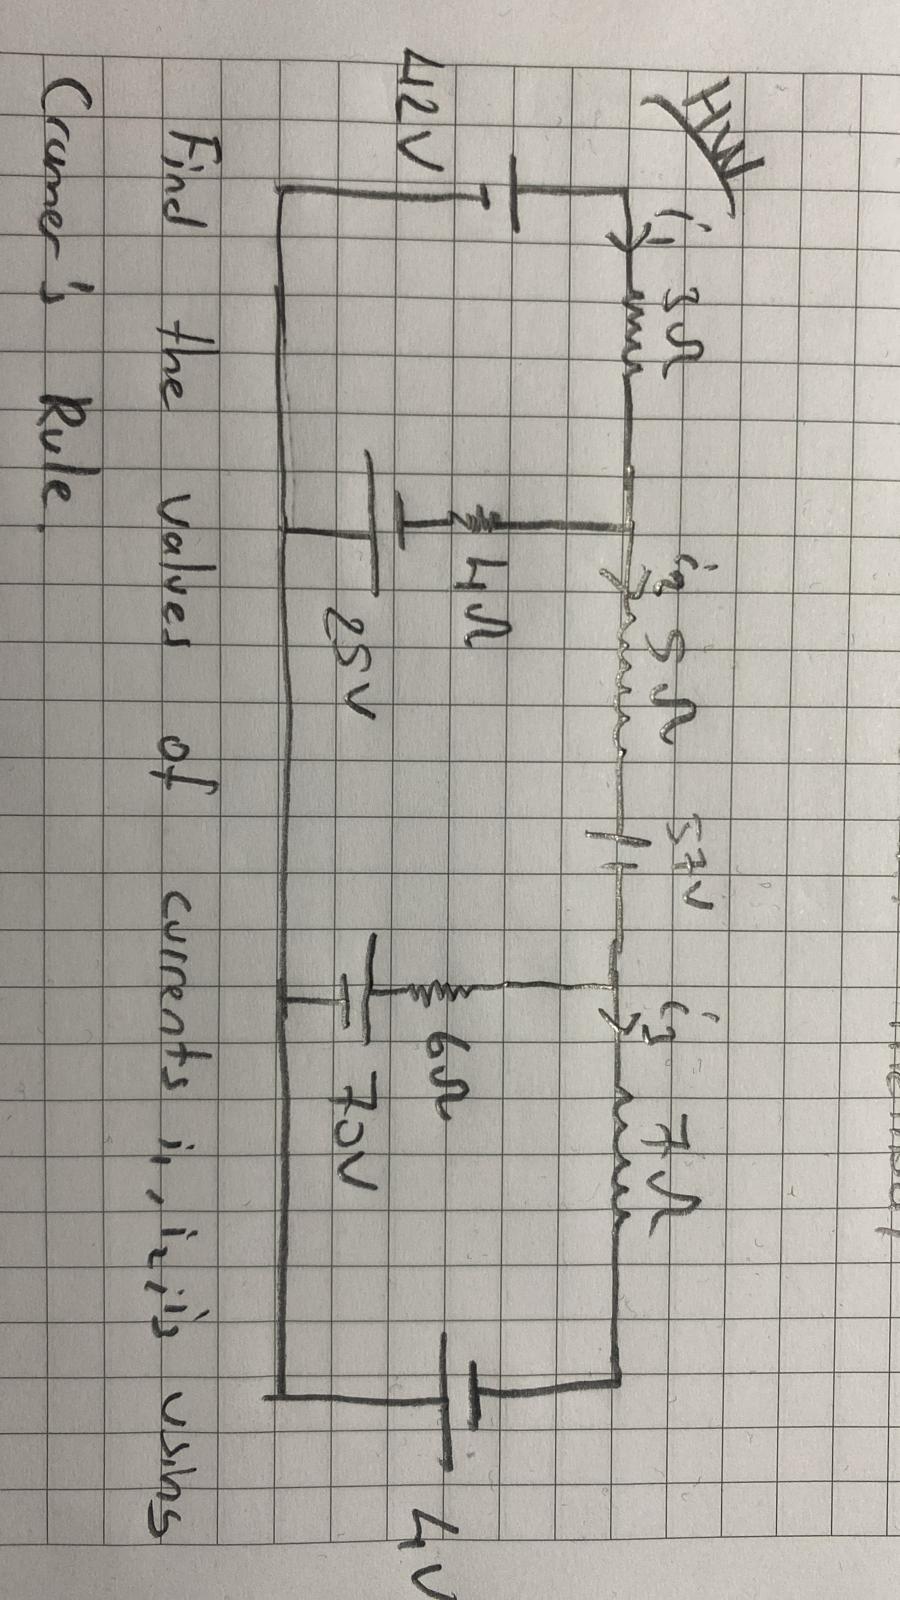 HW
i₁ 3Ω i₂ 5Ω 57V i₃ 7Ω
42V 4Ω 25V 6Ω 70V 4V
Find the values of currents i₁, i₂, i₃ using
Cramer's Rule.